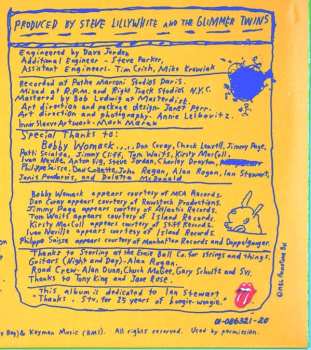 PRODUCED BY STEVE LILLYWHITE AND THE GLIMMER TWINS
Engineered by Dave Jerden
Additional Engineer - Steve Parker,
Assistant Engineers. Tim Crich, Mike Krowiak
Recorded at Pathe Marconi Studios Paris.
Mixed at R.P.M. and Right Track Studios N.Y.C.
Mastered by Bob Ludwig at Masterdisk.
Art direction and package design. Janet Perr.
Art direction and photography. Annie Leibovitz.
Inner Sleeve Artwork. Mark Marek
Special Thanks to:
Bobby Womack..., Don Covay, Chuck Leavell, Jimmy Page,
Patti Scialfa, Jimmy Cliff, Tom Waits, Kirsty MacColl,
Ivan Neville, Anton Fig, Steve Jordan, Charley Drayton,
Philippe Saisse, Dan Collette, John Regan, Alan Rogan, Ian Stewart,
Janis Pendarvis, and Dolette McDonald
Bobby Womack appears courtesy of MCA Records.
Don Covay appears courtesy of Rawstock Productions.
Jimmy Page appears courtesy of Atlantic Records.
Tom Waits appears courtesy of Island Records.
Kirsty MacColl appears courtesy of Stiff Records.
Ivan Neville appears courtesy of Island Records.
Philippe Saisse appears courtesy of Manhattan Records and Doppelganger.
Thanks to Sterling at the Ernie Ball Co. for strings and things.
Guitars (Night and Day) - Alan Rogan.
Road Crew - Alan Dunn, Chuck Magee, Gary Schultz and Svi.
Thanks to Tony King and Jane Rose.
This album is dedicated to Ian Stewart.
Thanks, Stu, for 25 years of boogie-woogie.
01-086321-20
Boy Bag) & Keyman Music (BMI). All rights reserved. Used by permission.